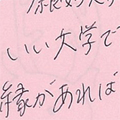 いい大学で
縁があれば